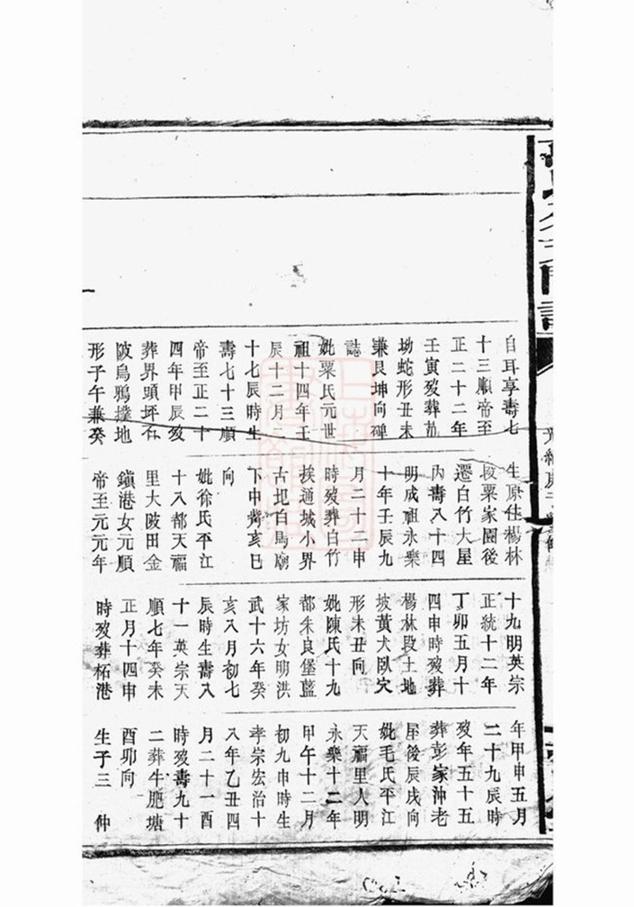 自耳享壽七
十三順帝至
正二十二年
壬寅歿葬
坳蛇形丑未
兼艮坤向碑
誌
妣粟氏元世
祖十四年壬
辰十二月二
十七辰時生
壽七十三順
帝至正二十
四年甲辰歿
葬界頭坪石
陂烏鴉撲地
形子午兼癸
生原住楊林
段粟家園後
遷白竹大屋
內壽八十四
明成祖永樂
十年壬辰九
月二十二申
時歿葬白竹
挨通城小界
古圯白馬廟
下中嘴亥巳
向
妣徐氏平江
十八都天福
里大陂田金
鎮港女元順
帝至元元年
十九明英宗
正統十二年
丁卯五月十
四申時歿葬
楊林段土地
坡黃犬臥穴
形未丑向
妣陳氏十九
都朱良堡藍
家坊女明洪
武十六年癸
亥八月初七
辰時生壽八
十一英宗天
順七年癸未
正月十四申
時歿葬柘港
年甲申五月
二十九辰時
歿年五十五
葬彭家沖老
屋後辰戌向
妣毛氏平江
天福里人明
永樂十二年
甲午十二月
初九申時生
孝宗宏治十
八年乙丑四
月二十一酉
時歿壽九十
二葬牛肥塘
酉卯向
生子三 仲